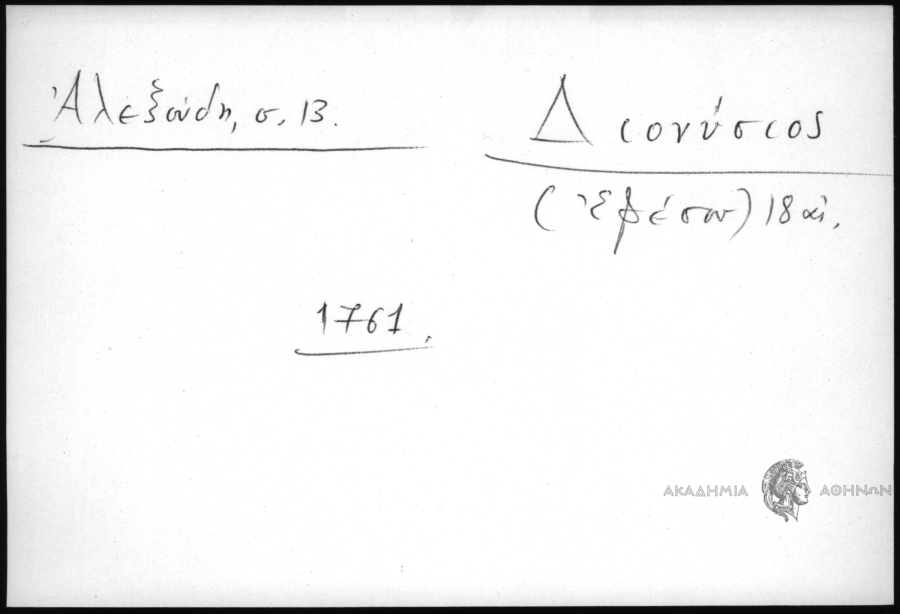 Ἀλεξούδη, σ. 13.
Διονύσιος
(Ἐφέσου) 18 αἰ.
1761.
ΑΚΑΔΗΜΙΑ ΑΘΗΝΩΝ